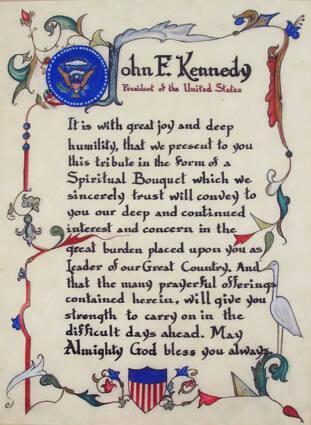 John F. Kennedy
President of the United States
It is with great joy and deep
humility, that we present to you
this tribute in the form of a
Spiritual Bouquet which we
sincerely trust will convey to
you our deep and continued
interest and concern in the
great burden placed upon you as
Leader of our Great Country. And
that the many prayerful offerings
contained herein, will give you
strength to carry on in the
difficult days ahead. May
Almighty God bless you always.